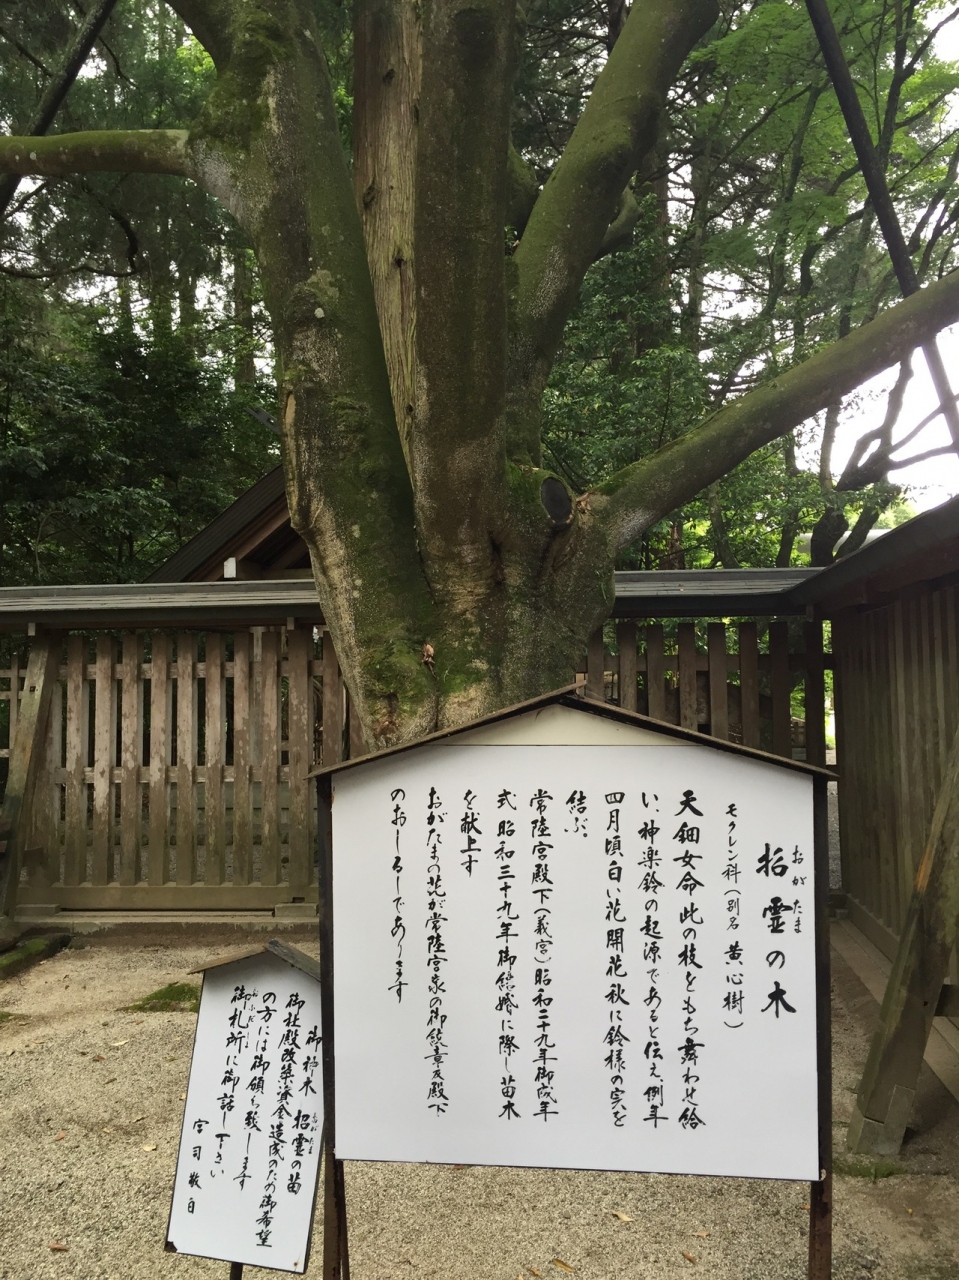 招霊の木
おがたま
モクレン科(別名 黄心樹)
天鈿女命此の枝をもち舞わせ給
い、神楽鈴の起源であると伝え、例年
四月頃白い花開花秋に鈴様の実を
結ぶ。
常陸宮殿下(義宮)昭和二十九年御成年
式、昭和三十九年御結婚に際し苗木
を献上す
おがたまの花が常陸宮家の御紋章及殿下
のおしるしであります
御神木 招霊の苗
おがたま
御社殿改築資金造成のため御希望
の方には御頒ち致します
御札所に御話し下さい
おふだしょ
宮司敬白